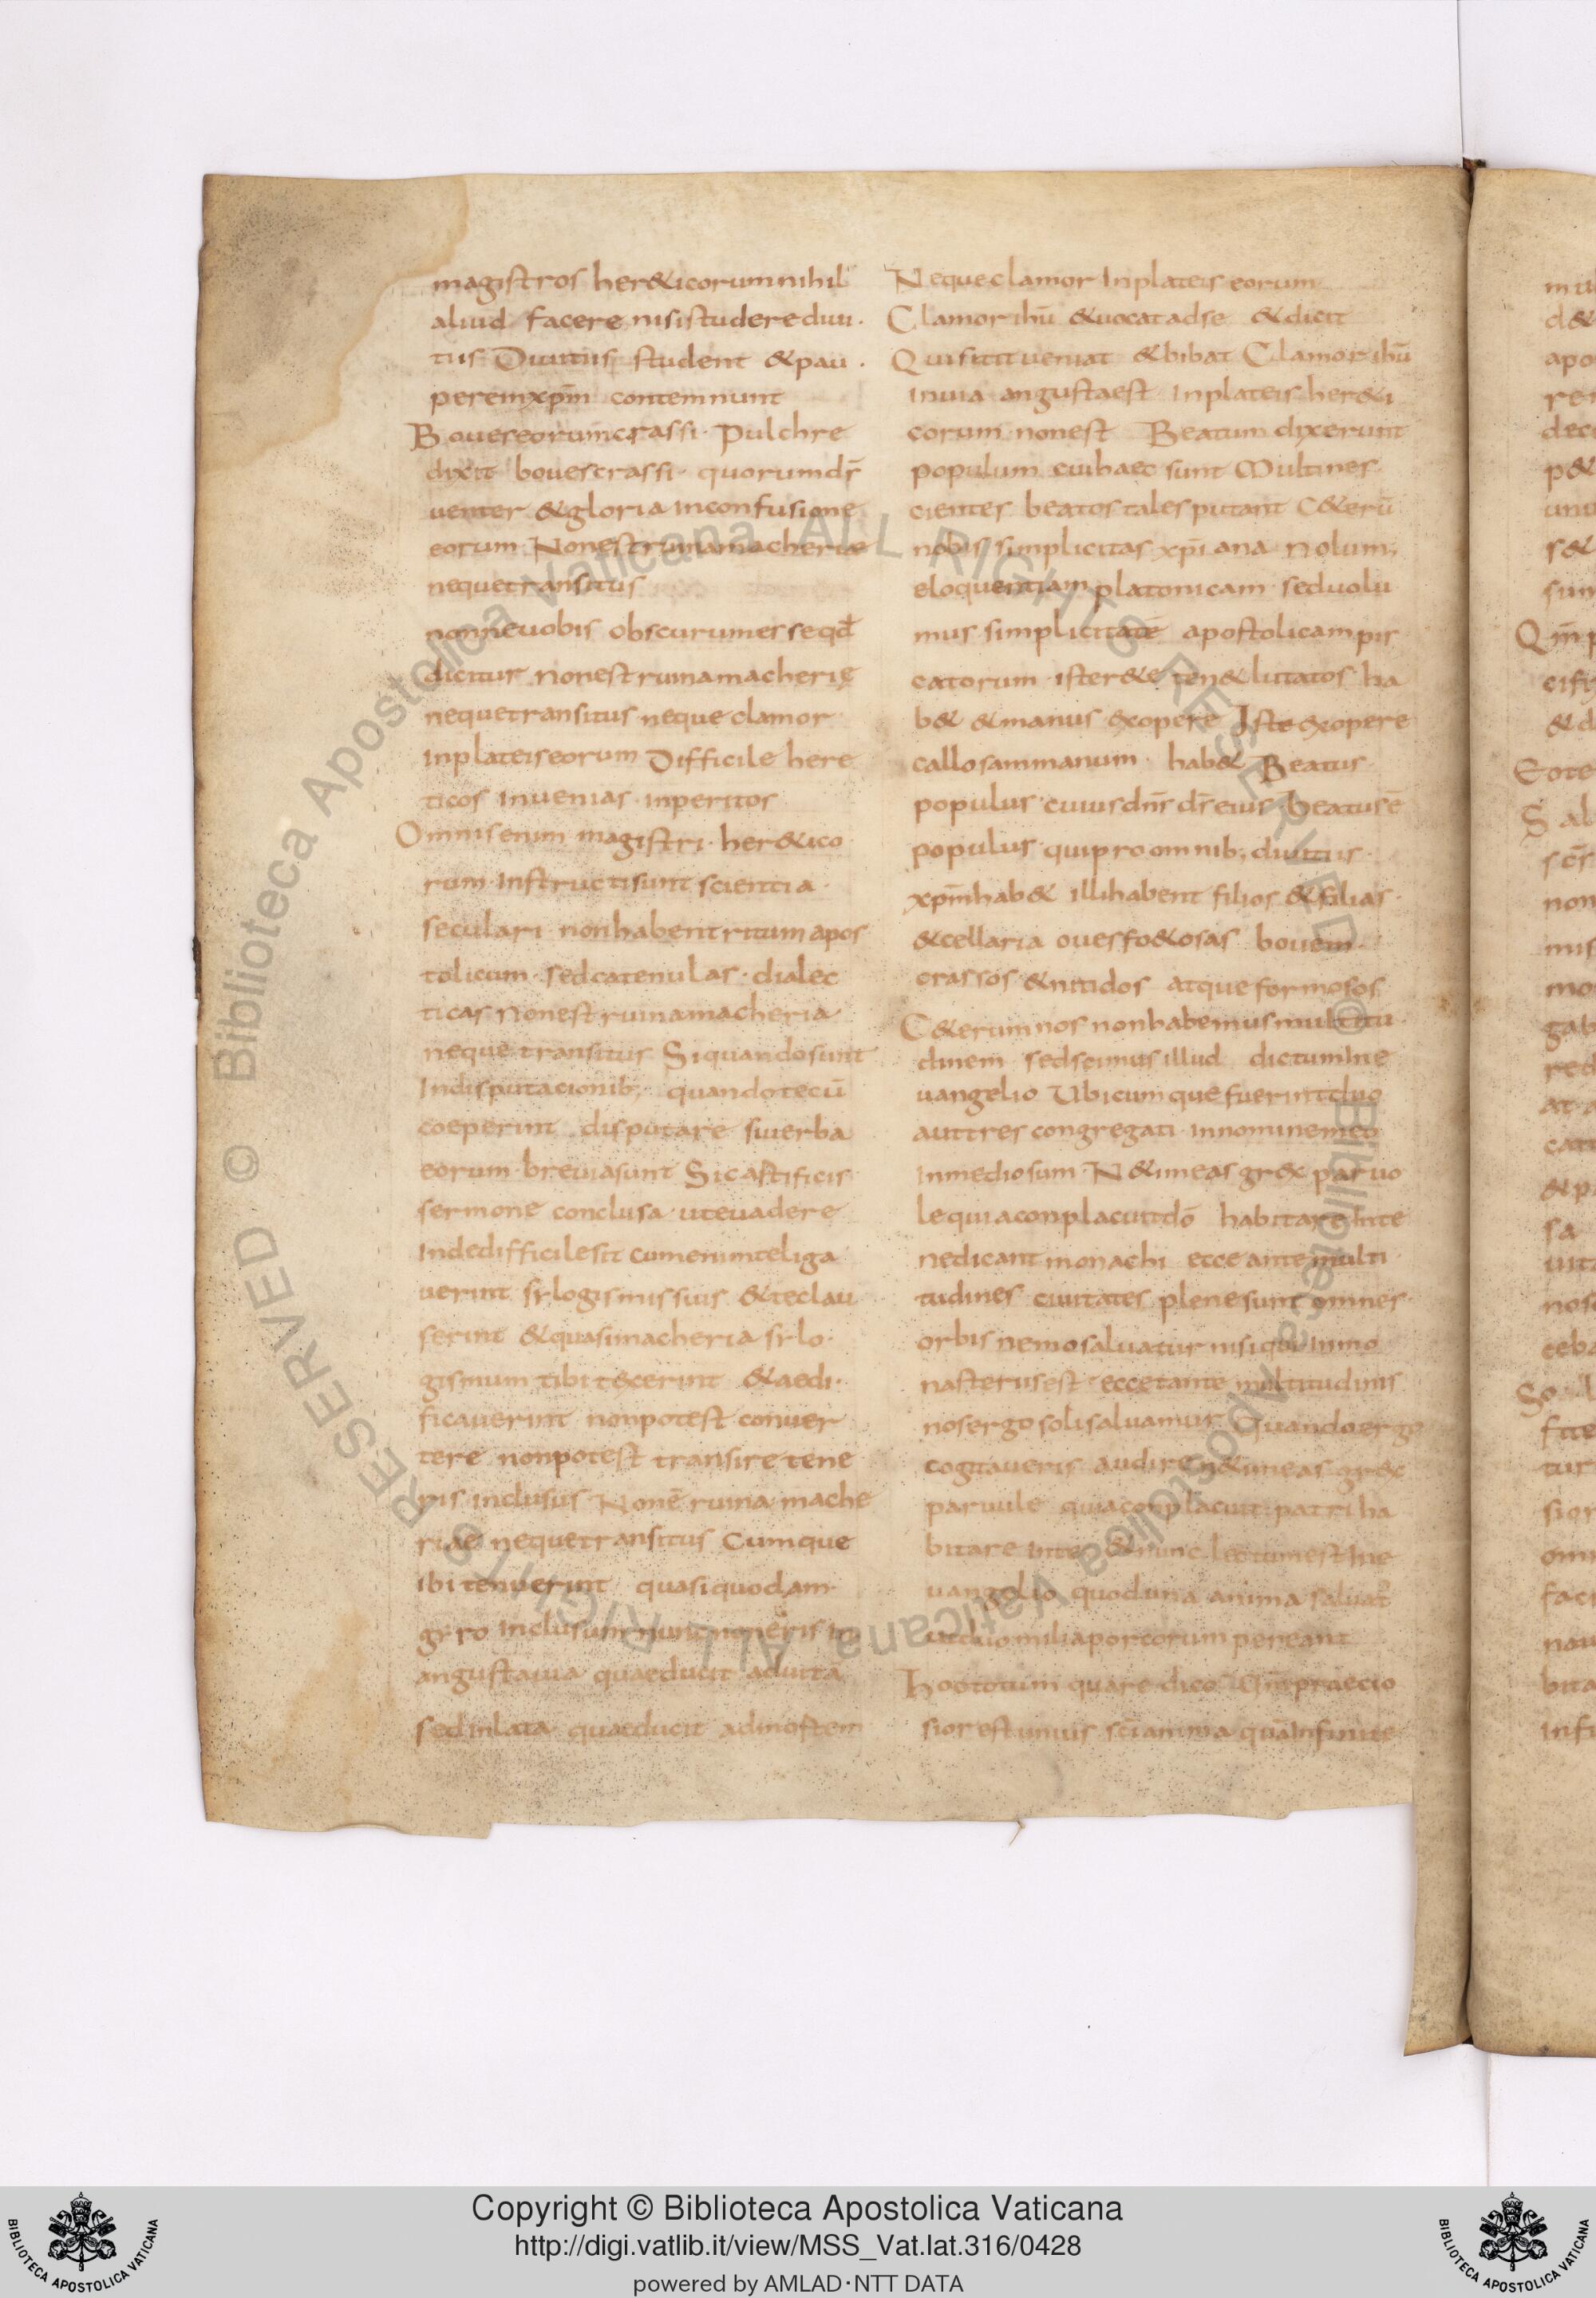 magistros her&icorum nihil
aliud facere nisi studere diui·
tus Diuitiis student &pau·
perem xp̄m contemnunt
Boues eorum crassi· Pulchre
dixit boues crassi· quorum dr̄
uenter &gloria inconfusione
eorum Non est ruina macheriae
neque transitus
nonne uobis obscurum esse qd̄
dicitur non est ruina macherię
neque transitus neque clamor
Inplateis eorum Difficile here
ticos inuenias· inperitos
Omnis enim magistri· her&ico
rum· Instructi sunt scientia·
seculari non habent ritum apos
tolicum· sed catenulas· dialec
ticas Non est ruina macheria
neque transitus Si quando sunt
Indisputacionib; quando tecū
coeperint disputare si uerba
eorum· breuia sunt Sic astificis
sermone conclusa· ut euadere
Inde difficile sit cum enim te liga
uerint sylogismis suis &te clau
serint &quasi macheria sylo·
gismum tibi texerint &aedi·
ficauerint non potest conuer
tere non potest transire tene
ris inclusus Non ē ruina mache
riae neque transitus Cumque
ibi tenuerint quasi quodam·
gyro inclusum nunc non eris in
angusta uia quae ducit ad uitā
sed in lata quae ducit ad mostem
Neque clamor Inplateis eorum
Clamor ihū &uocat adse &dicit
Qui sitit ueniat &bibat Clamor ihū
inuia angusta est Inplateis her&i
corum non est Beatum dixerunt
populum cui haec sunt Multi nes
cientes beatos tales putant C&erū
nobis simplicitas xp̄iana Nolum;
eloquentiam platonicam· sed uolu
mus simplicitatē apostolicam pis
catorum iste r&e ten& lutatos ha
b& &manus exopere Iste exopere
callosam manum· hab& Beatus
populus· cuius dn̄s ds̄ eius Beatus ē
populus· qui pro omnib; diuitiis·
xp̄m hab& illi habent filios &filias·
&cellaria oues fo&osas bouem·
crassos &nitidos atque formosos
C&erum nos non habemus multitu
dinem sed scimus illud dictum Ine
uangelio Ubicumque fuerint duo
aut tres congregati in nomine meo
In medio sum· N& imeas gr&x paruo
le quia conplacuit dō habitare Inte
ne dicant monachi ecce ante multi
tudines ciuitates plene sunt omnes·
orbis nemo saluatur nisi qui Inmo
nasterus est· ecce tante multitudinis
nos ergo soli saluamur Quando ergo
cogitaueris audire n& imeas gr&x
paruule quia conplacuit patri ha
bitare inte &nunc lectum est Ine
uangelio quod una anima saluat᷑
ut duo milia porcorum pereant
Hoc totum quare dico Qm̄ praecio
sior est unius· sci anima quā Infinite
Copyright © Biblioteca Apostolica Vaticana
http://digi.vatlib.it/view/MSS_Vat.lat.316/0428
powered by AMLAD·NTT DATA